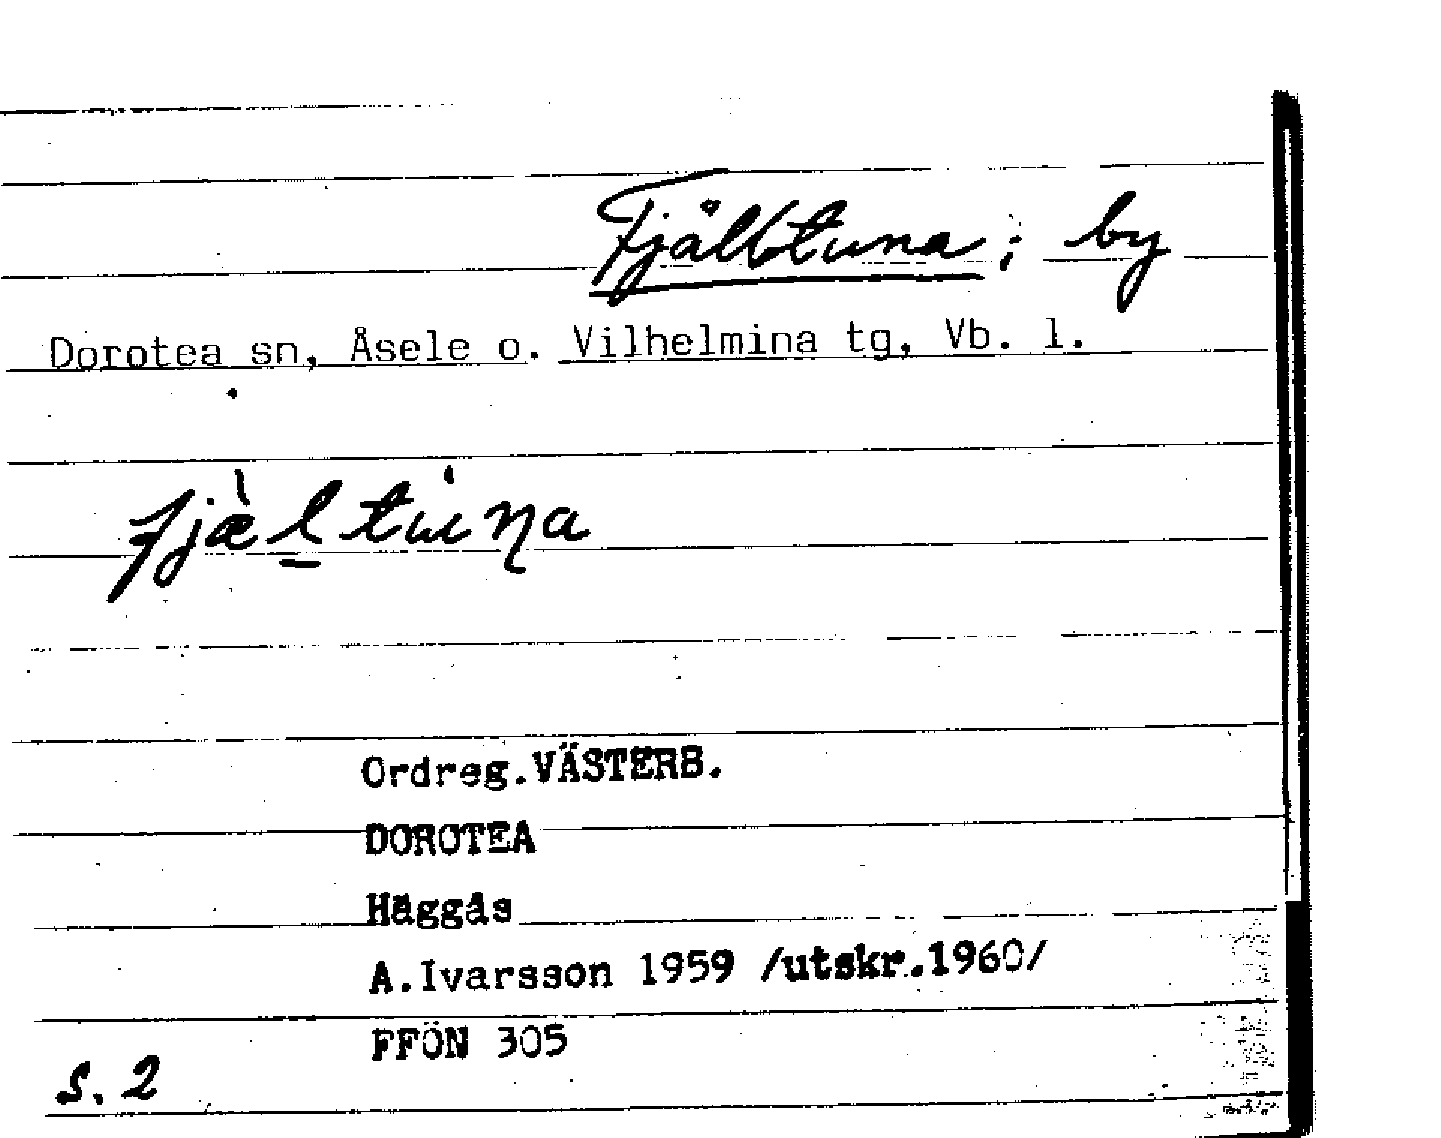 Fjälltuna; by
Dorotea sn, Åsele o. Vilhelmina tg, Vb. l.
fjæ̀l tu̇ɩŋa
Ordreg.VÄSTERB.
DOROTEA
Häggås
A.Ivarsson 1959 /utskr.1960/
FFÖN 305
s. 2